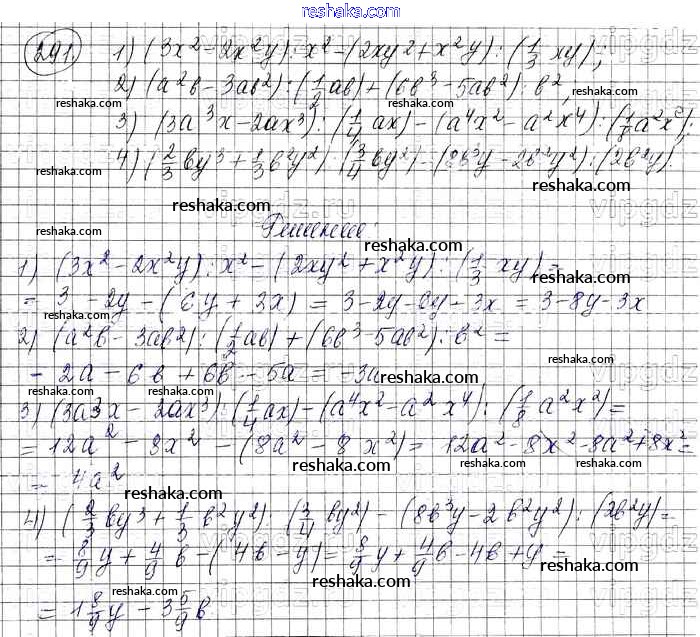 reshaka.ru
291. 1) (3x² - 2x²y) : x² - (2xy² + x²y) : (1/3 xy);
2) (a²b - 3ab²) : (1/2 ab) + (6b³ - 5ab²) : b²,
3) (3a³x - 2ax³) : (1/4 ax) - (a⁴x² - a²x⁴) : (1/8 a²x²);
4) (2/3 by³ + 1/3 b²y²) : (3/4 by²) - (8b³y - 2b²y²) : (2b²y).
Решение:
1) (3x² - 2x²y) : x² - (2xy² + x²y) : (1/3 xy) =
= 3 - 2y - (6y + 3x) = 3 - 2y - 6y - 3x = 3 - 8y - 3x
2) (a²b - 3ab²) : (1/2 ab) + (6b³ - 5ab²) : b² =
- 2a - 6b + 6b - 5a = -3a
3) (3a3x - 2ax³) : (1/4 ax) - (a⁴x² - a²x⁴) : (1/8 a²x²) =
= 12a² - 8x² - (8a² - 8x²) = 12a² - 8x² - 8a² + 8x² =
= 4a²
4) (2/3 by³ + 1/3 b²y²) : (3/4 by²) - (8b³y - 2b²y²) : (2b²y) =
= 8/9 y + 4/9 b - (4b - y) = 8/9 y + 4/9 b - 4b + y =
= 1 8/9 y - 3 5/9 b